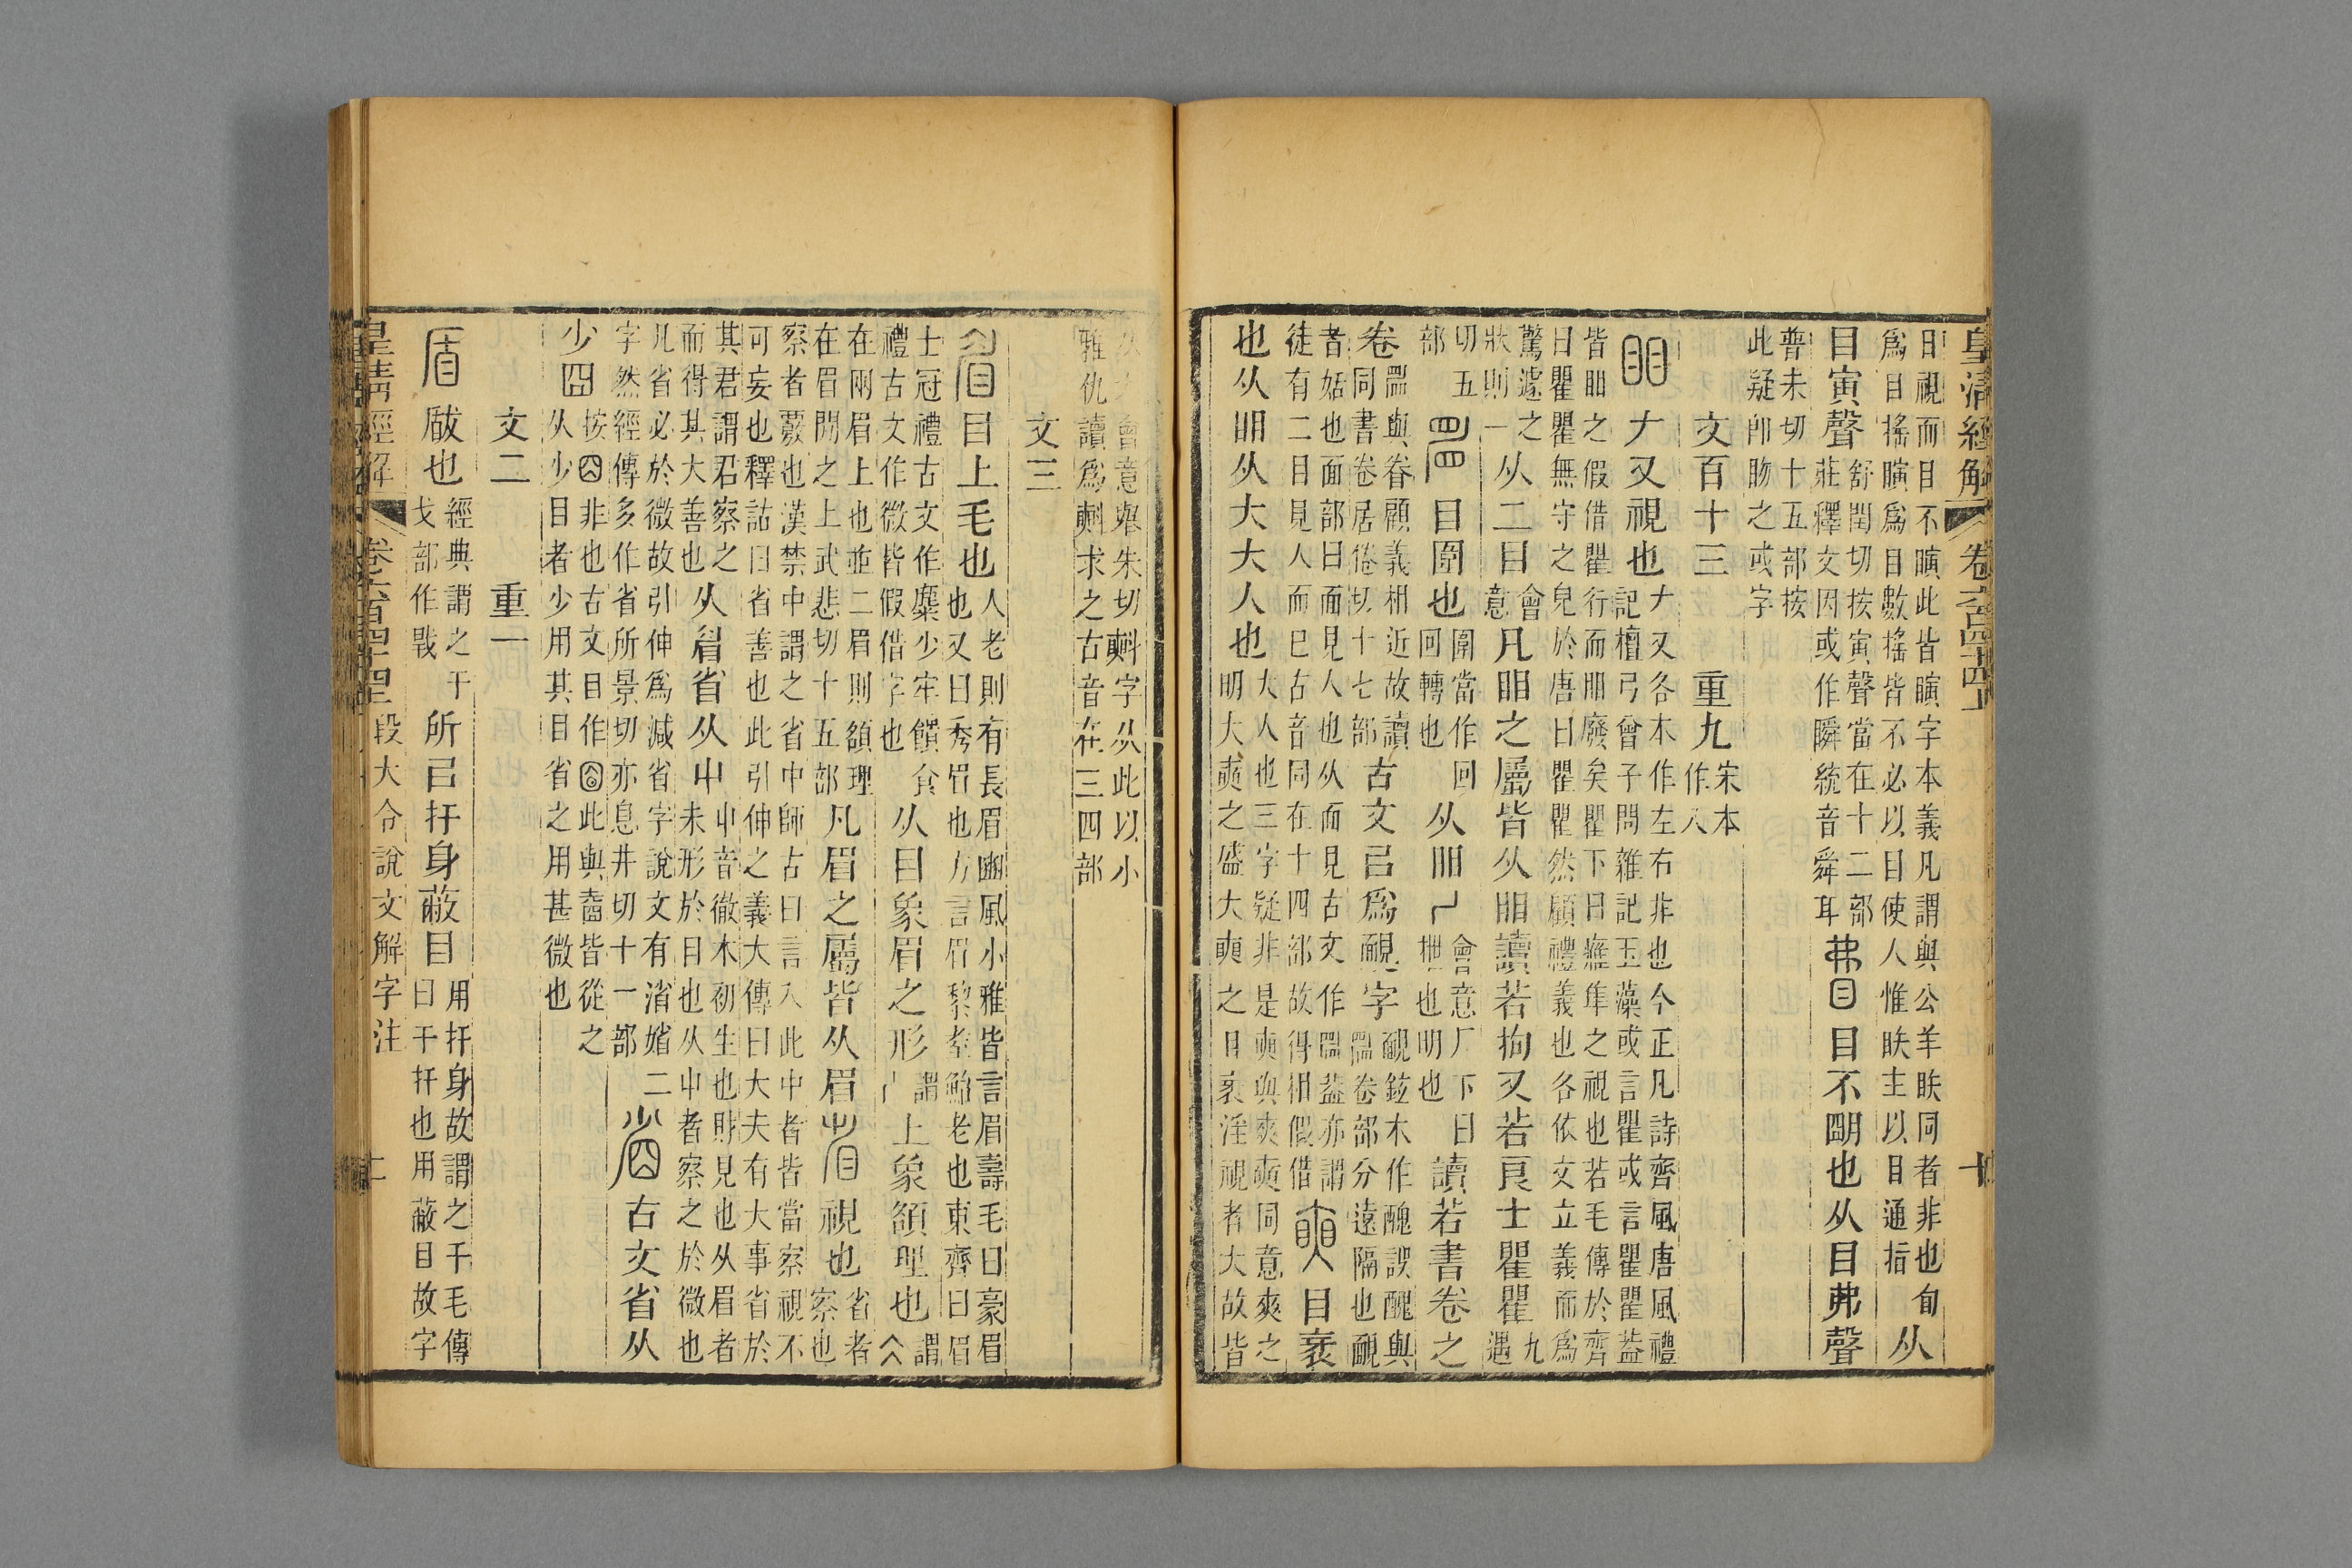 皇清經解 卷六百四十四上 十
曰視而目不瞚此皆瞚字本義凡謂與公羊眣同者非也旬
爲目搖瞚爲目數搖皆不必以目使人惟眣主以目通指
从
目寅聲
舒閏切按寅聲當在十二部
莊釋文因或作瞬統音舜耳
𥄱目不明也从目弗聲
普未切十五部按
此疑卽昒之或字
文百十三 重九
宋本
作八
𥄕𠂇又視也
𠂇又各本作左右非也今正凡詩齊風唐風禮
記檀弓曾子問雜記玉藻或言瞿或言瞿瞿葢
皆䀠之假借瞿行而䀠廢矣瞿下曰䧹隼之視也若毛傳於齊
曰瞿瞿無守之皃於唐曰瞿瞿然顧禮義也各依文立義而爲
驚遽之
狀則一
从二目
會
意
凡䀠之屬皆从䀠讀若拘又若良士瞿瞿
九
遇
切五
部
目圍也
圍當作回
回轉也
从䀠𠃊
會意𠂆下曰
抴也明也
讀若書卷之
卷
𥇛與眷顧義相近故讀
同書卷居倦切十七部
古文㠯爲靦字
靦鉉本作醜誤醜與
𥇛卷部分遠隔也靦
者姡也面部曰面見人也从面見古文作𥇛葢亦謂
徒有二目見人而已古音同在十四部故得相假借
目衺
也从䀠从大大人也
大人也三字疑非是奭與爽奭同意爽之
明大奭之盛大奭之目衺淫視者大故皆
从大會意舉朱切㪺字从此以小
雅仇讀爲㪺求之古音在三四部
文三
眉目上毛也
人老則有長眉豳風小雅皆言眉壽毛曰豪眉
也又曰秀眉也方言眉黎耊鮐老也東齊曰眉
士冠禮古文作麋少牢饋食
禮古文作微皆假借字也
从目象眉之形
謂
上象頟理也
謂
𠆢𠆢
在兩眉上也並二眉則頟理
在眉閒之上武悲切十五部
凡眉之屬皆从眉
省視也
省者
察也
察者覈也漢禁中謂之省中師古曰言入此中者皆當察視不
可妄也釋詁曰省善也此引伸之義大傳曰大夫有大事省於
其君謂君察之
而得其大善也
从眉省从屮
屮音徹木初生也財見也从眉者
未形於目也从屮者察之於微也
凡省必於微故引伸爲減省字說文有渻媘二
字然經傳多作省所景切亦息井切十一部
古文省从
少囧
按囧非也古文目作𡇡此與𥄎皆從之
从少目者少用其目省之用甚微也
文二 重一
盾瞂也
經典謂之干
戈部作戰
所㠯扞身蔽目
用扞身故謂之干毛傳
曰干扞也用蔽目故字
皇清經解 卷六百四十四上 段大令說文解字注 十一